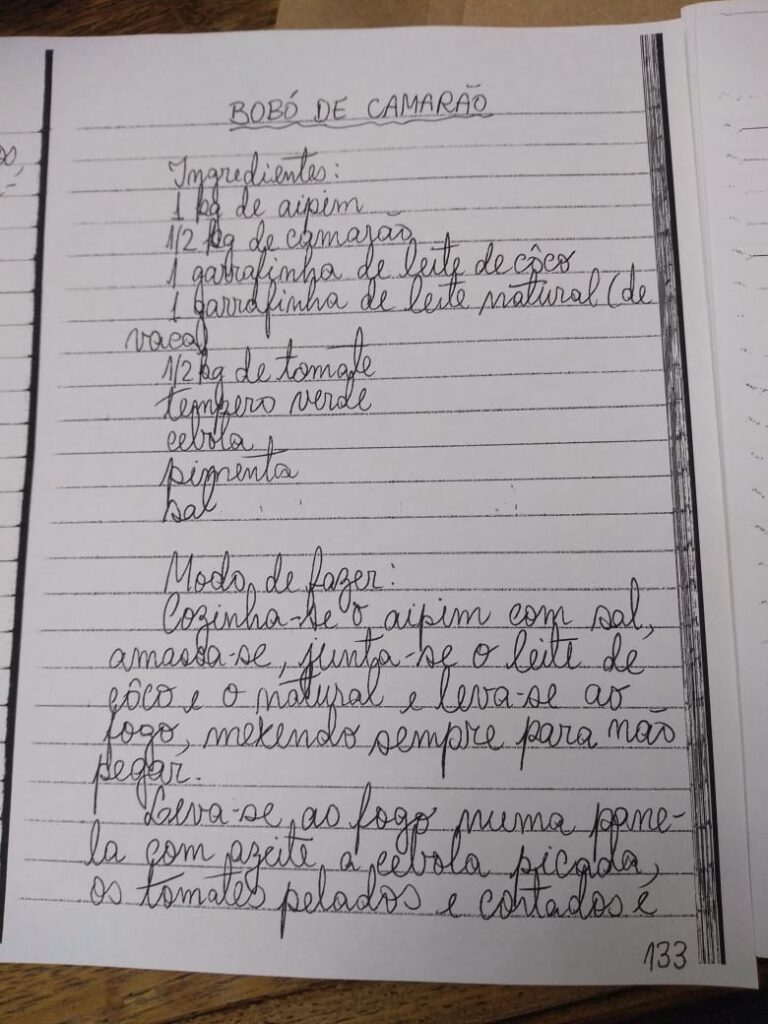 BOBÓ DE CAMARÃO
Ingredientes:
1 kg de aipim
1/2 kg de camarão
1 garrafinha de leite de côco
1 garrafinha de leite natural (de
vaca)
1/2 kg de tomate
tempero verde
cebola
pimenta
sal
Modo de fazer:
Cozinha-se o aipim com sal,
amassa-se, junta-se o leite de
côco e o natural e leva-se ao
fogo, mexendo sempre para não
pegar.
Leva-se ao fogo numa pane-
la com azeite a cebola picada,
os tomates pelados e cortados e
133